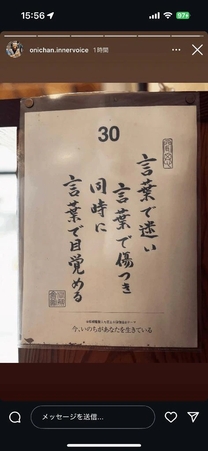 15:56
97+
onichan.innervoice 1時間
30
言葉で迷い
言葉で傷つき
同時に
言葉で目覚める
今、いのちがあなたを生きている
メッセージを送信...